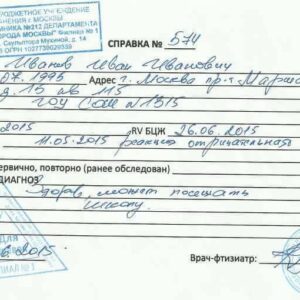 БЮДЖЕТНОЕ УЧРЕЖДЕНИЕ
ЗДРАВООХРАНЕНИЯ Г. МОСКВЫ
ПОЛИКЛИНИКА №212 ДЕПАРТАМЕНТА
ГОРОДА МОСКВЫ" Филиал № 1
Скульптора Мухиной, д. 14
ОГРН 1027739029339
СПРАВКА № 574
Иванов Иван Иванович
07.1995 Адрес г. Москва пр-т Марша
д. 15 кв 115
ГОУ СОШ №1315
2015 RV БЦЖ 26.06.2015
11.05.2015 реакция отрицательная
первично, повторно (ранее обследован)
ДИАГНОЗ
Здоров, может посещать
школу.
ДЛЯ
6.2015.
Врач-фтизиатр: